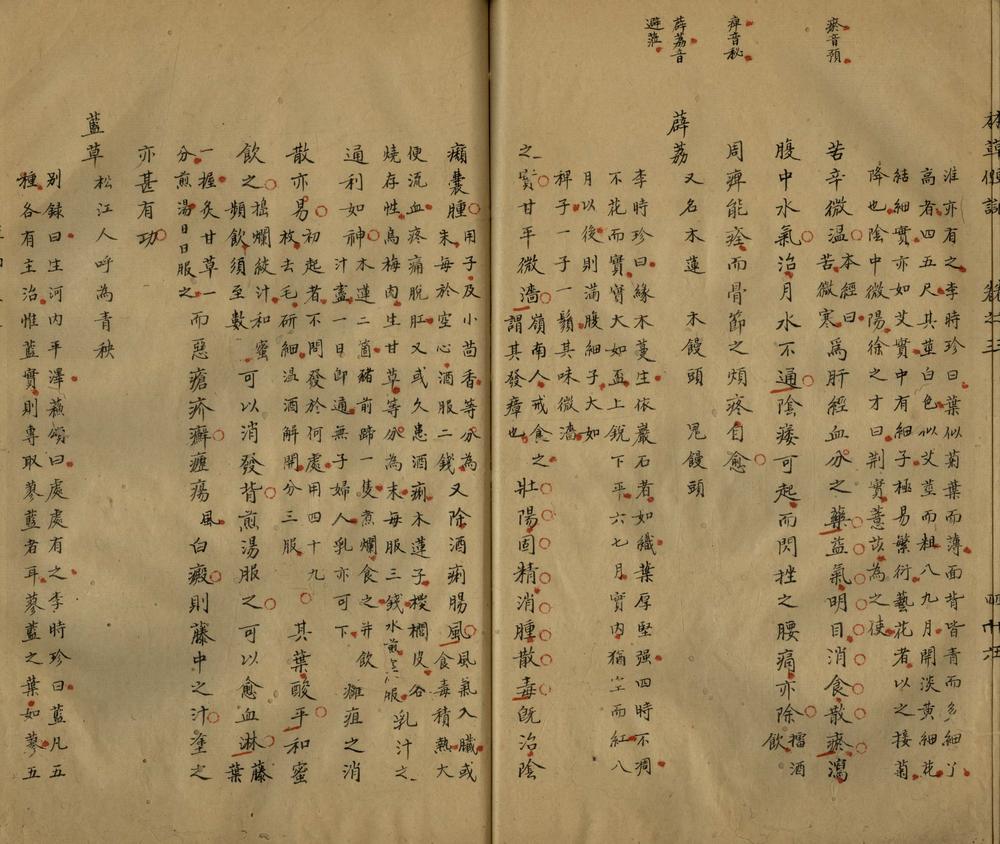 瘀音預
痺音秘
薜荔音
避莅
淮亦有之李時珍曰葉似菊葉而薄面背皆青而多細丫
高者四五尺其莖白色似艾莖而粗八九月開淡黃細花
結細實亦如艾實中有細子極易繁衍藝花者以之接菊
降也陰中微陽徐之才曰荆實薏苡為之使
苦辛微温
本經曰
苦微寒
為肝經血分之藥益氣明目消食散瘀瀉
腹中水氣治月水不通陰痿可起而閃挫之腰痛亦除
擂酒
飲
周痺能痊而骨節之煩疼自愈
薜荔
又名木蓮 木饅頭 鬼饅頭
李時珍曰緣木蔓生依巖石者如織葉厚堅强四時不凋
不花而實實大如盃上銳下平六七月實内猶空而紅八
月以後則滿腹細子大如
稗子一子一鬚其味微濇
之實甘平微濇
嶺南人戒食
謂其發瘴也
之壯陽固精消腫散毒旣治陰
癩囊腫
用子及小茴香等分為
末每於空心酒服二錢
又除酒痢腸風
風氣入臟或
食毒積熱大
便流血疼痛脫肛又或久患酒痢木蓮子椶櫚皮各
燒存性烏梅肉生甘草等分為末每服三錢水煎
服
乳汁之
通利如神
木蓮二箇豬前蹄一隻煮爛食之并飲
汁盡一日即通無子婦人乳亦可下
癰疽之消
散亦易
初起者不問發於何處用四十九
枚去毛研細温酒解開分三服
其葉酸平和蜜
飲之
搗爛絞汁和蜜
頻飲須至數
可以消發背煎湯服之可以愈血淋
藤
葉
一握炙甘草一
分煎湯日日服之
而惡瘡疥癬癧瘍風白癜則藤中之汁塗之
亦甚有功
藍草
松江人呼為青秧
别録曰生河内平澤蘇頌曰處處有之李時珍曰藍凡五
種各有主治惟藍實則專取蓼藍者耳蓼藍之葉如蓼五